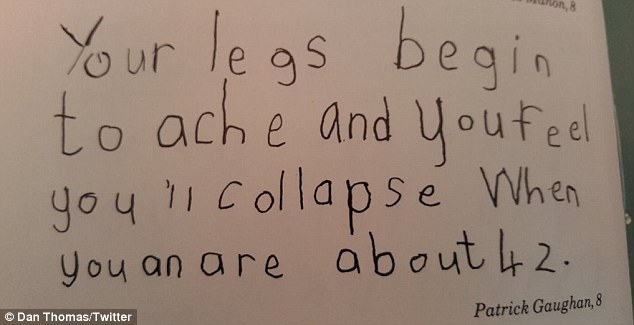 Mahon, 8
Your legs begin
to ache and you feel
you'll collapse When
you an are about 42.
Patrick Gaughan, 8
© Dan Thomas/Twitter